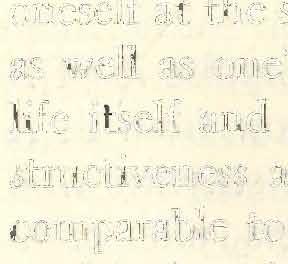 oneself at the s
as well as one'
life itself and
structiveness a
comparable to